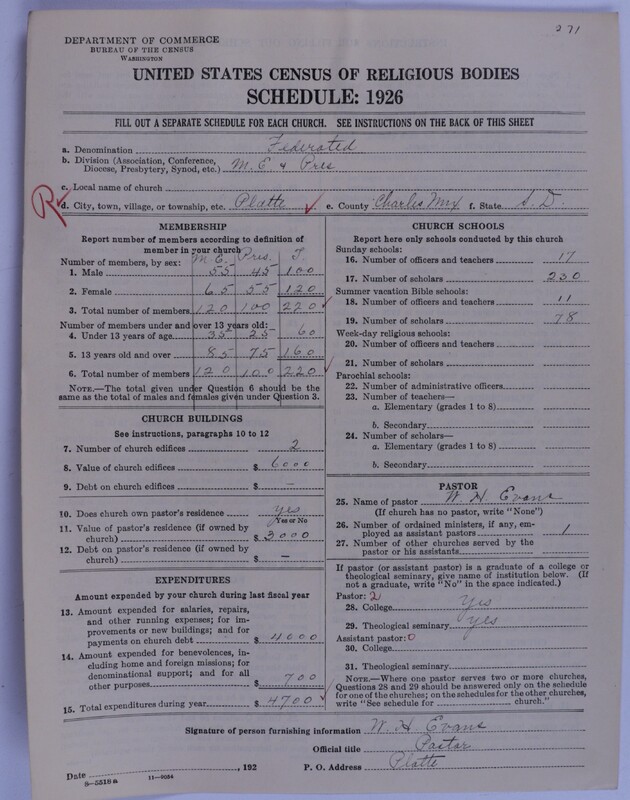 271
DEPARTMENT OF COMMERCE
BUREAU OF THE CENSUS
WASHINGTON
UNITED STATES CENSUS OF RELIGIOUS BODIES
SCHEDULE: 1926
FILL OUT A SEPARATE SCHEDULE FOR EACH CHURCH. SEE INSTRUCTIONS ON THE BACK OF THIS SHEET
a. Denomination Federated
b. Division (Association, Conference, Diocese, Presbytery, Synod, etc.) M. E & Pres
c. Local name of church
R
d. City, town, village, or township, etc. Platte e. County Charles Mix f. State S. D.
MEMBERSHIP
Report number of members according to definition of member in your church
M. E. Pres. T.
Number of members, by sex:
1. Male 55 45 100
2. Female 65 55 120
3. Total number of members 120 100 220
Number of members under and over 13 years old:
4. Under 13 years of age 35 25 60
5. 13 years old and over 85 75 160
6. Total number of members 120 100 220
NOTE.—The total given under Question 6 should be the same as the total of males and females given under Question 3.
CHURCH BUILDINGS
See instructions, paragraphs 10 to 12
7. Number of church edifices 2
8. Value of church edifices $ 6000
9. Debt on church edifices $ —
10. Does church own pastor's residence yes
Yes or No
11. Value of pastor's residence (if owned by church) $ 3000
12. Debt on pastor's residence (if owned by church) $ —
EXPENDITURES
Amount expended by your church during last fiscal year
13. Amount expended for salaries, repairs, and other running expenses; for improvements or new buildings; and for payments on church debt $ 4000
14. Amount expended for benevolences, including home and foreign missions; for denominational support; and for all other purposes $ 700
15. Total expenditures during year $ 4700
CHURCH SCHOOLS
Report here only schools conducted by this church
Sunday schools:
16. Number of officers and teachers 17
17. Number of scholars 230
Summer vacation Bible schools:
18. Number of officers and teachers 11
19. Number of scholars 78
Week-day religious schools:
20. Number of officers and teachers
21. Number of scholars
Parochial schools:
22. Number of administrative officers
23. Number of teachers—
a. Elementary (grades 1 to 8)
b. Secondary
24. Number of scholars—
a. Elementary (grades 1 to 8)
b. Secondary
PASTOR
25. Name of pastor W. H Evans
(If church has no pastor, write "None")
26. Number of ordained ministers, if any, employed as assistant pastors 1
27. Number of other churches served by the pastor or his assistants
If pastor (or assistant pastor) is a graduate of a college or theological seminary, give name of institution below. (If not a graduate, write "No" in the space indicated.)
Pastor: 2
28. College Yes
29. Theological seminary yes
Assistant pastor: 0
30. College
31. Theological seminary
NOTE.—Where one pastor serves two or more churches, Questions 28 and 29 should be answered only on the schedule for one of the churches; on the schedules for the other churches, write "See schedule for church."
Signature of person furnishing information W. H Evans
Official title Pastor
Date , 192 P. O. Address Platte
8-5518a 11-9054